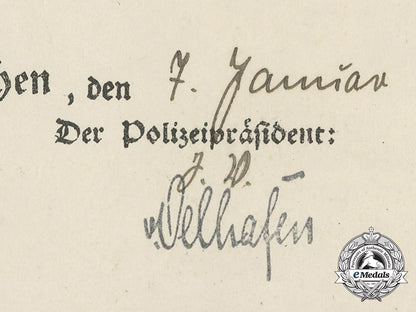 hen, den 7. Januar
Der Polizeipräsident:
J. V.
v. Oelhafen
eMedals